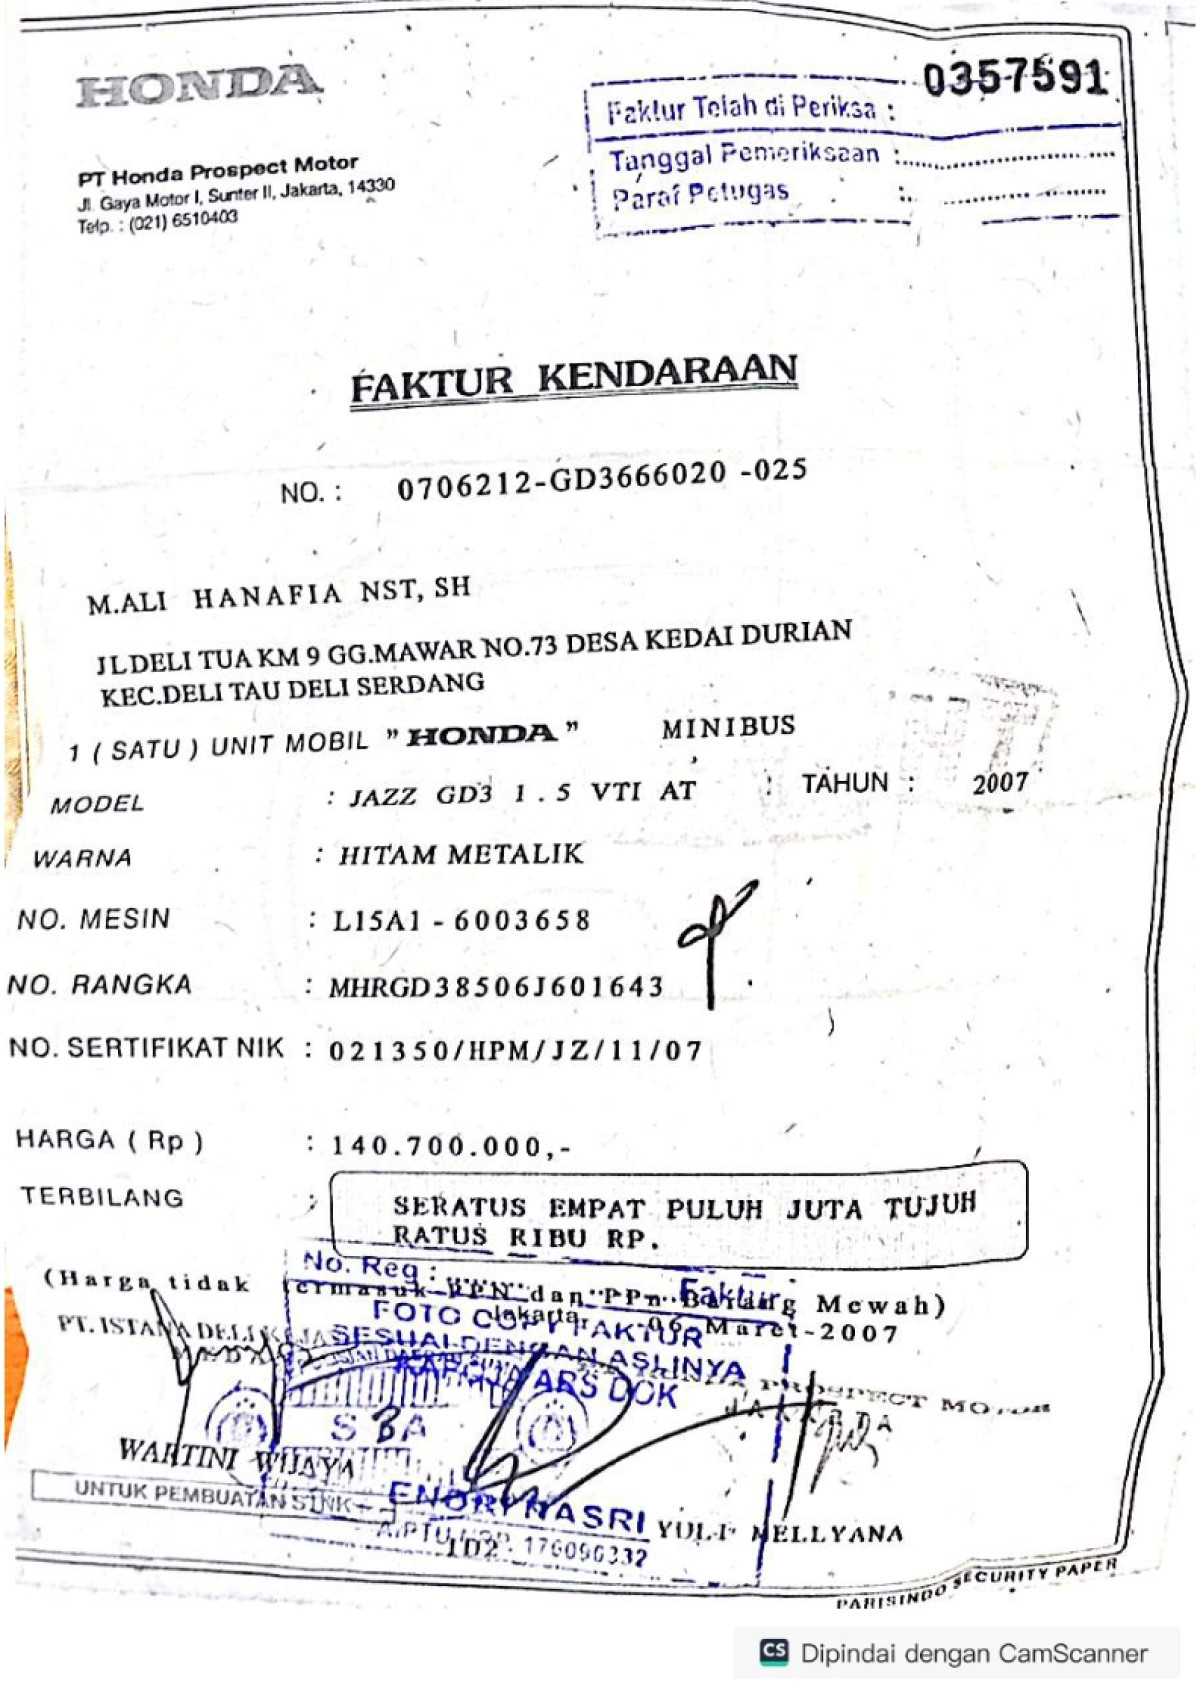 HONDA
0357591
Faktur Telah di Periksa :
Tanggal Pemeriksaan :
Paraf Petugas :
PT Honda Prospect Motor
Jl. Gaya Motor I, Sunter II, Jakarta, 14330
Telp. : (021) 6510403
FAKTUR KENDARAAN
NO. : 0706212-GD3666020 -025
M.ALI HANAFIA NST, SH
JLDELI TUA KM 9 GG.MAWAR NO.73 DESA KEDAI DURIAN
KEC.DELI TAU DELI SERDANG
1 ( SATU ) UNIT MOBIL " HONDA " MINIBUS
MODEL : JAZZ GD3 1.5 VTI AT TAHUN : 2007
WARNA : HITAM METALIK
NO. MESIN : L15A1 - 6003658
NO. RANGKA : MHRGD38506J601643
NO. SERTIFIKAT NIK : 021350/HPM/JZ/11/07
HARGA ( Rp ) : 140.700.000,-
TERBILANG : SERATUS EMPAT PULUH JUTA TUJUH
RATUS RIBU RP.
No. Reg : Faktur
(Harga tidak termasuk PPN dan PPn Barang Mewah)
Jakarta, 06-Maret-2007
FOTO COPY FAKTUR
PT. ISTANA DELI
SESUAI DENGAN ASLINYA
ARS DOK
PROSPECT MOTOR
WARTINI WIJAYA
UNTUK PEMBUATAN
YULI NELLYANA
PARISINDO SECURITY PAPER
CS Dipindai dengan CamScanner